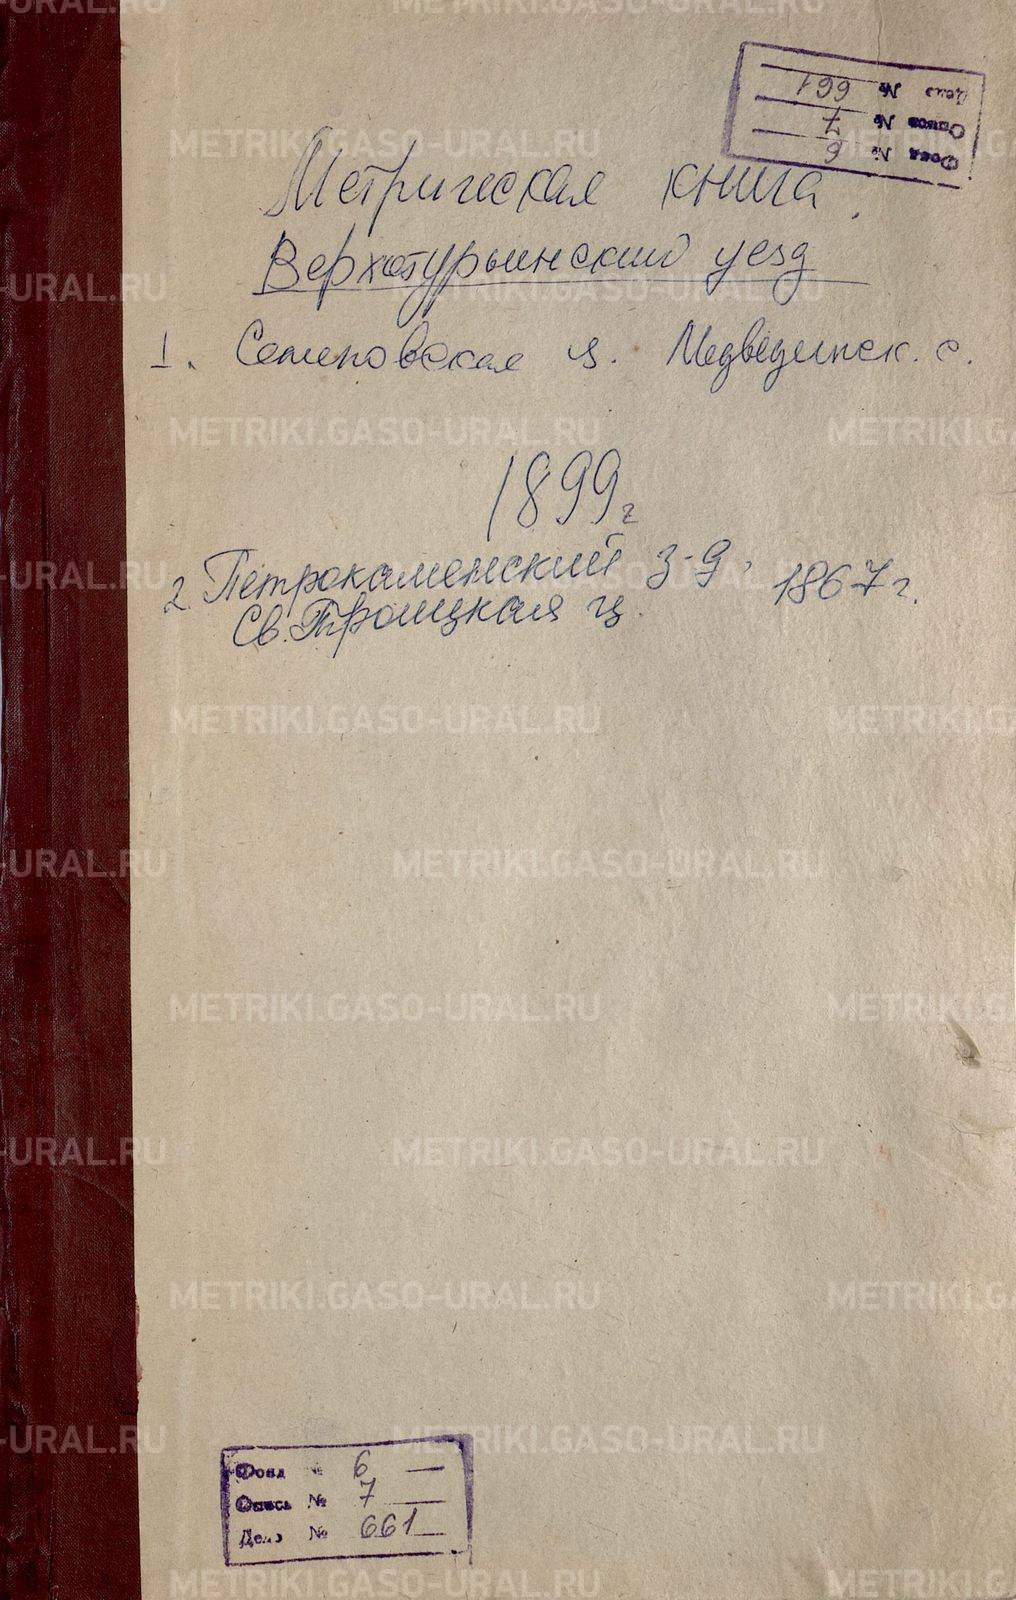 Дело № 661
Опись № 7
Фонд № 6
Метрическая книга
Верхотурьинский уезд
1. Семеновская ц. Медведчинск. с.
1899 г
2 Петрокаменский з-д, 1867 г.
Св. Троицкая ц.
Фонд № 6
Опись № 7
Дело № 661
METRIKI.GASO-URAL.RU